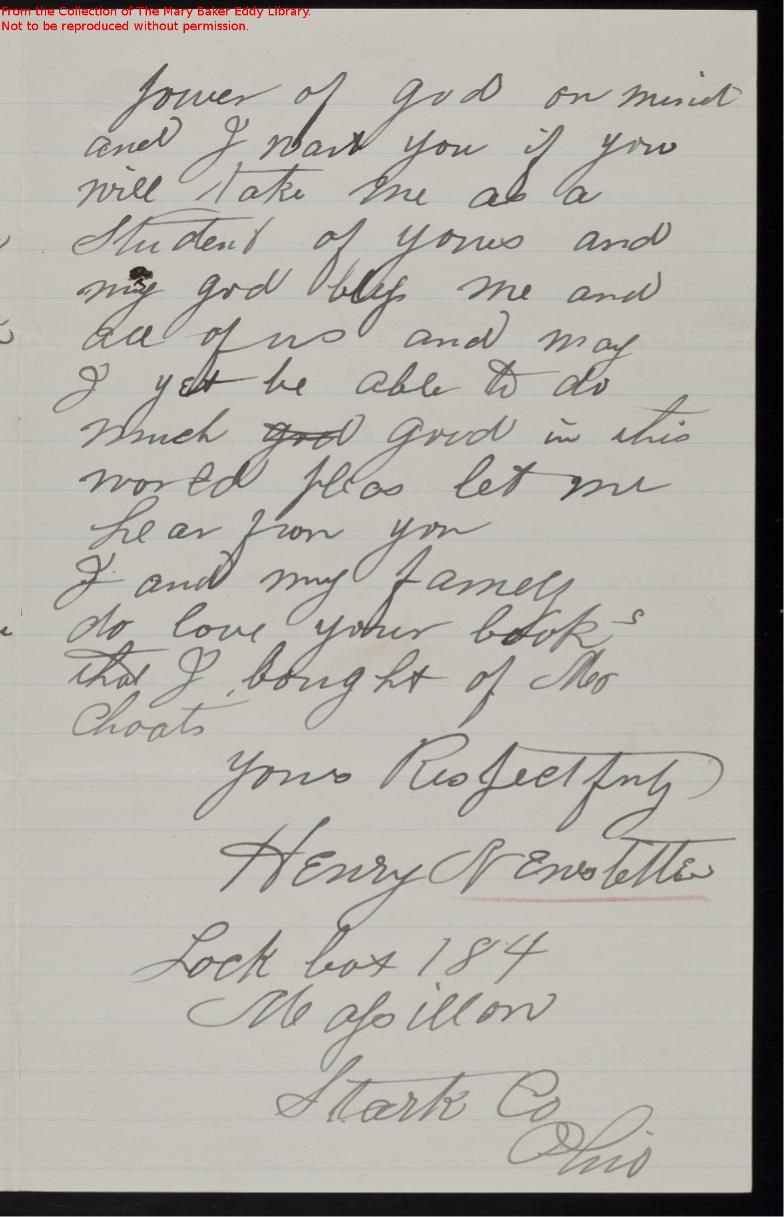 From the Collection of The Mary Baker Eddy Library.
Not to be reproduced without permission.
power of god on mind
and I want you if you
will take me as a
Student of yours and
may god bless me and
all of us and may
I yet be able to do
much god good in this
world pleas let me
hear from you
I and my famely
do love your book's
that I bought of Mr
Choats
Yours Respectfuly
Henry Newstetter
Lock box 184
Massillon
Stark Co
Ohio